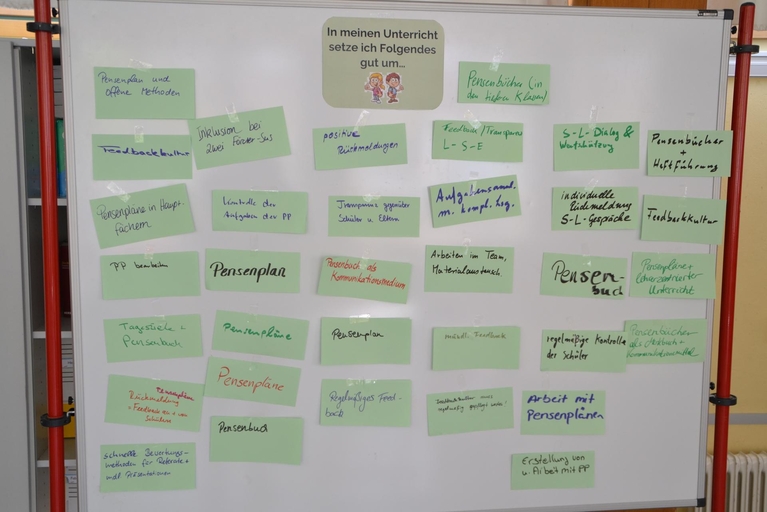 In meinen Unterricht
setze ich Folgendes
gut um...
Pensenbücher (in
den tiefen Klassen)
Pensenplan und
offene Methoden
Feedbackkultur
Inklusion bei
zwei Förder-SuS
positive
Rückmeldungen
Feedback/Transparenz
L-S-E
S-L-Dialog &
Wertschätzung
Pensenbücher
+
Heftführung
Pensenpläne in Haupt-
fächern
Kontrolle der
Aufgaben der PP
Transparenz gegenüber
Schüler u. Eltern
Aufgabensamml.
m. kompl. Lsg.
individuelle
Rückmeldung
S-L-Gespräche
Feedbackkultur
PP bearbeiten
Pensenplan
Pensenbuch als
Kommunikationsmedium
Arbeiten im Team,
Materialaustausch
Pensen-
buch
Pensenpläne +
lehrerzentrierter
Unterricht
Tagesziele +
Pensenbuch
Pensenpläne
Pensenplan
mündl. Feedback
regelmäßige Kontrolle
der Schüler
Pensenbücher
als Merkbuch +
Kommunikationsmittel
Rückmeldung
Schülern
Pensenpläne
Regelmäßiges Feed-
back
regelmäßig gepflegt werden
Arbeit mit
Pensenplänen
Pensenbuch
schnelle Bewertungs-
methoden für Referate +
mdl. Präsentationen
Erstellung von
u. Arbeit mit PP